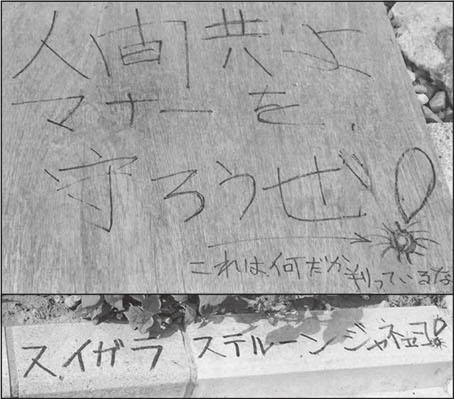 人間共よ
マナーを
守ろうぜ!
これは何だか判っているな
スイガラ ステルーンジャネヨ